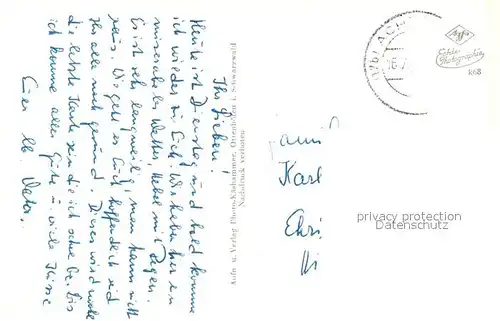 Ihr Lieben!
Heute ist Dienstag und bald komme
ich wieder zu Euch. Wir haben hier ein
miserables Wetter, Nebel mit Regen.
Es ist sehr langweilig, man kann nicht
raus. Wie geht es Euch hoffentlich seid
Ihr alle noch gesund. Dieses wird wohl
die letzte Karte sein die ich schreibe. Bis
ich komme alles Gute u. viele Küsse
Euer lb. Vater.
Aufn. u. Verlag Photo-Käshammer, Ottenhöfen i. Schwarzwald
Nachdruck verboten
Agfa
Echte
Photographie
Karl
privacy protection
Datenschutz